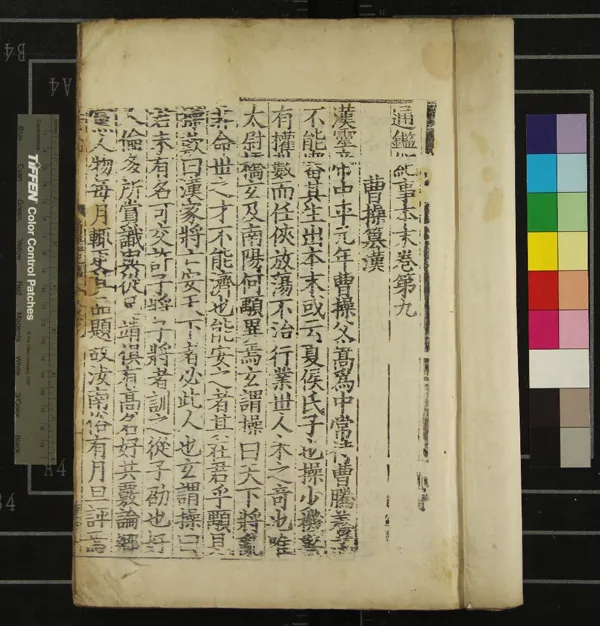 通鑑紀事本末卷第九
曹操簒漢
漢靈帝中平元年曹操父嵩爲中常侍曹騰養子
不能審其生出本末或云夏侯氏子也操少機警
有權數而任俠放蕩不治行業世人未之竒也唯
太尉橋玄及南陽何顒異焉玄謂操曰天下將亂
非命世之才不能濟也能安之者其在君乎顒見
操歎曰漢家將亡安天下者必此人也玄謂操曰
君未有名可交許子將子將者訓之從子劭也好
人倫多所賞識與從兄靖俱有高名好共覈論鄉
黨人物每月輒更其品題故汝南俗有月旦評焉
TIFFEN Color Control Patches
A4
B4
A4